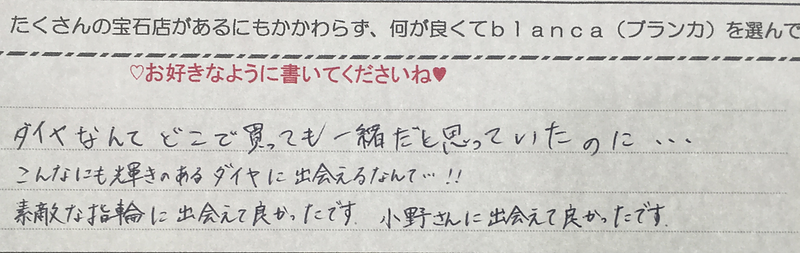 たくさんの宝石店があるにもかかわらず、何が良くてｂｌａｎｃａ（ブランカ）を選んで
♡お好きなように書いてくださいね♥
ダイヤなんて どこで買っても 一緒だと思っていたのに ･･･
こんなにも輝きのあるダイヤに出会えるなんて…!!
素敵な指輪に出会えて良かったです。小野さんに出会えて良かったです。